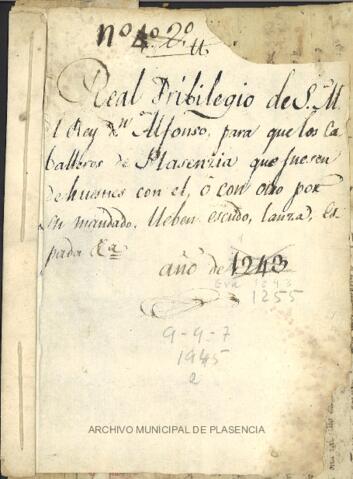 nº 4º 2º
Real Pribilegio de S. M.
el Rey Dn Alfonso, para que los Ca
balleros de Plasenzia que fuesen
de huestes con el, ô con otro por
su mandado. lleben escudo, lanza, es
pada &a
año de 1243
Era 1293
1255
9-9-7
1945
2
ARCHIVO MUNICIPAL DE PLASENCIA